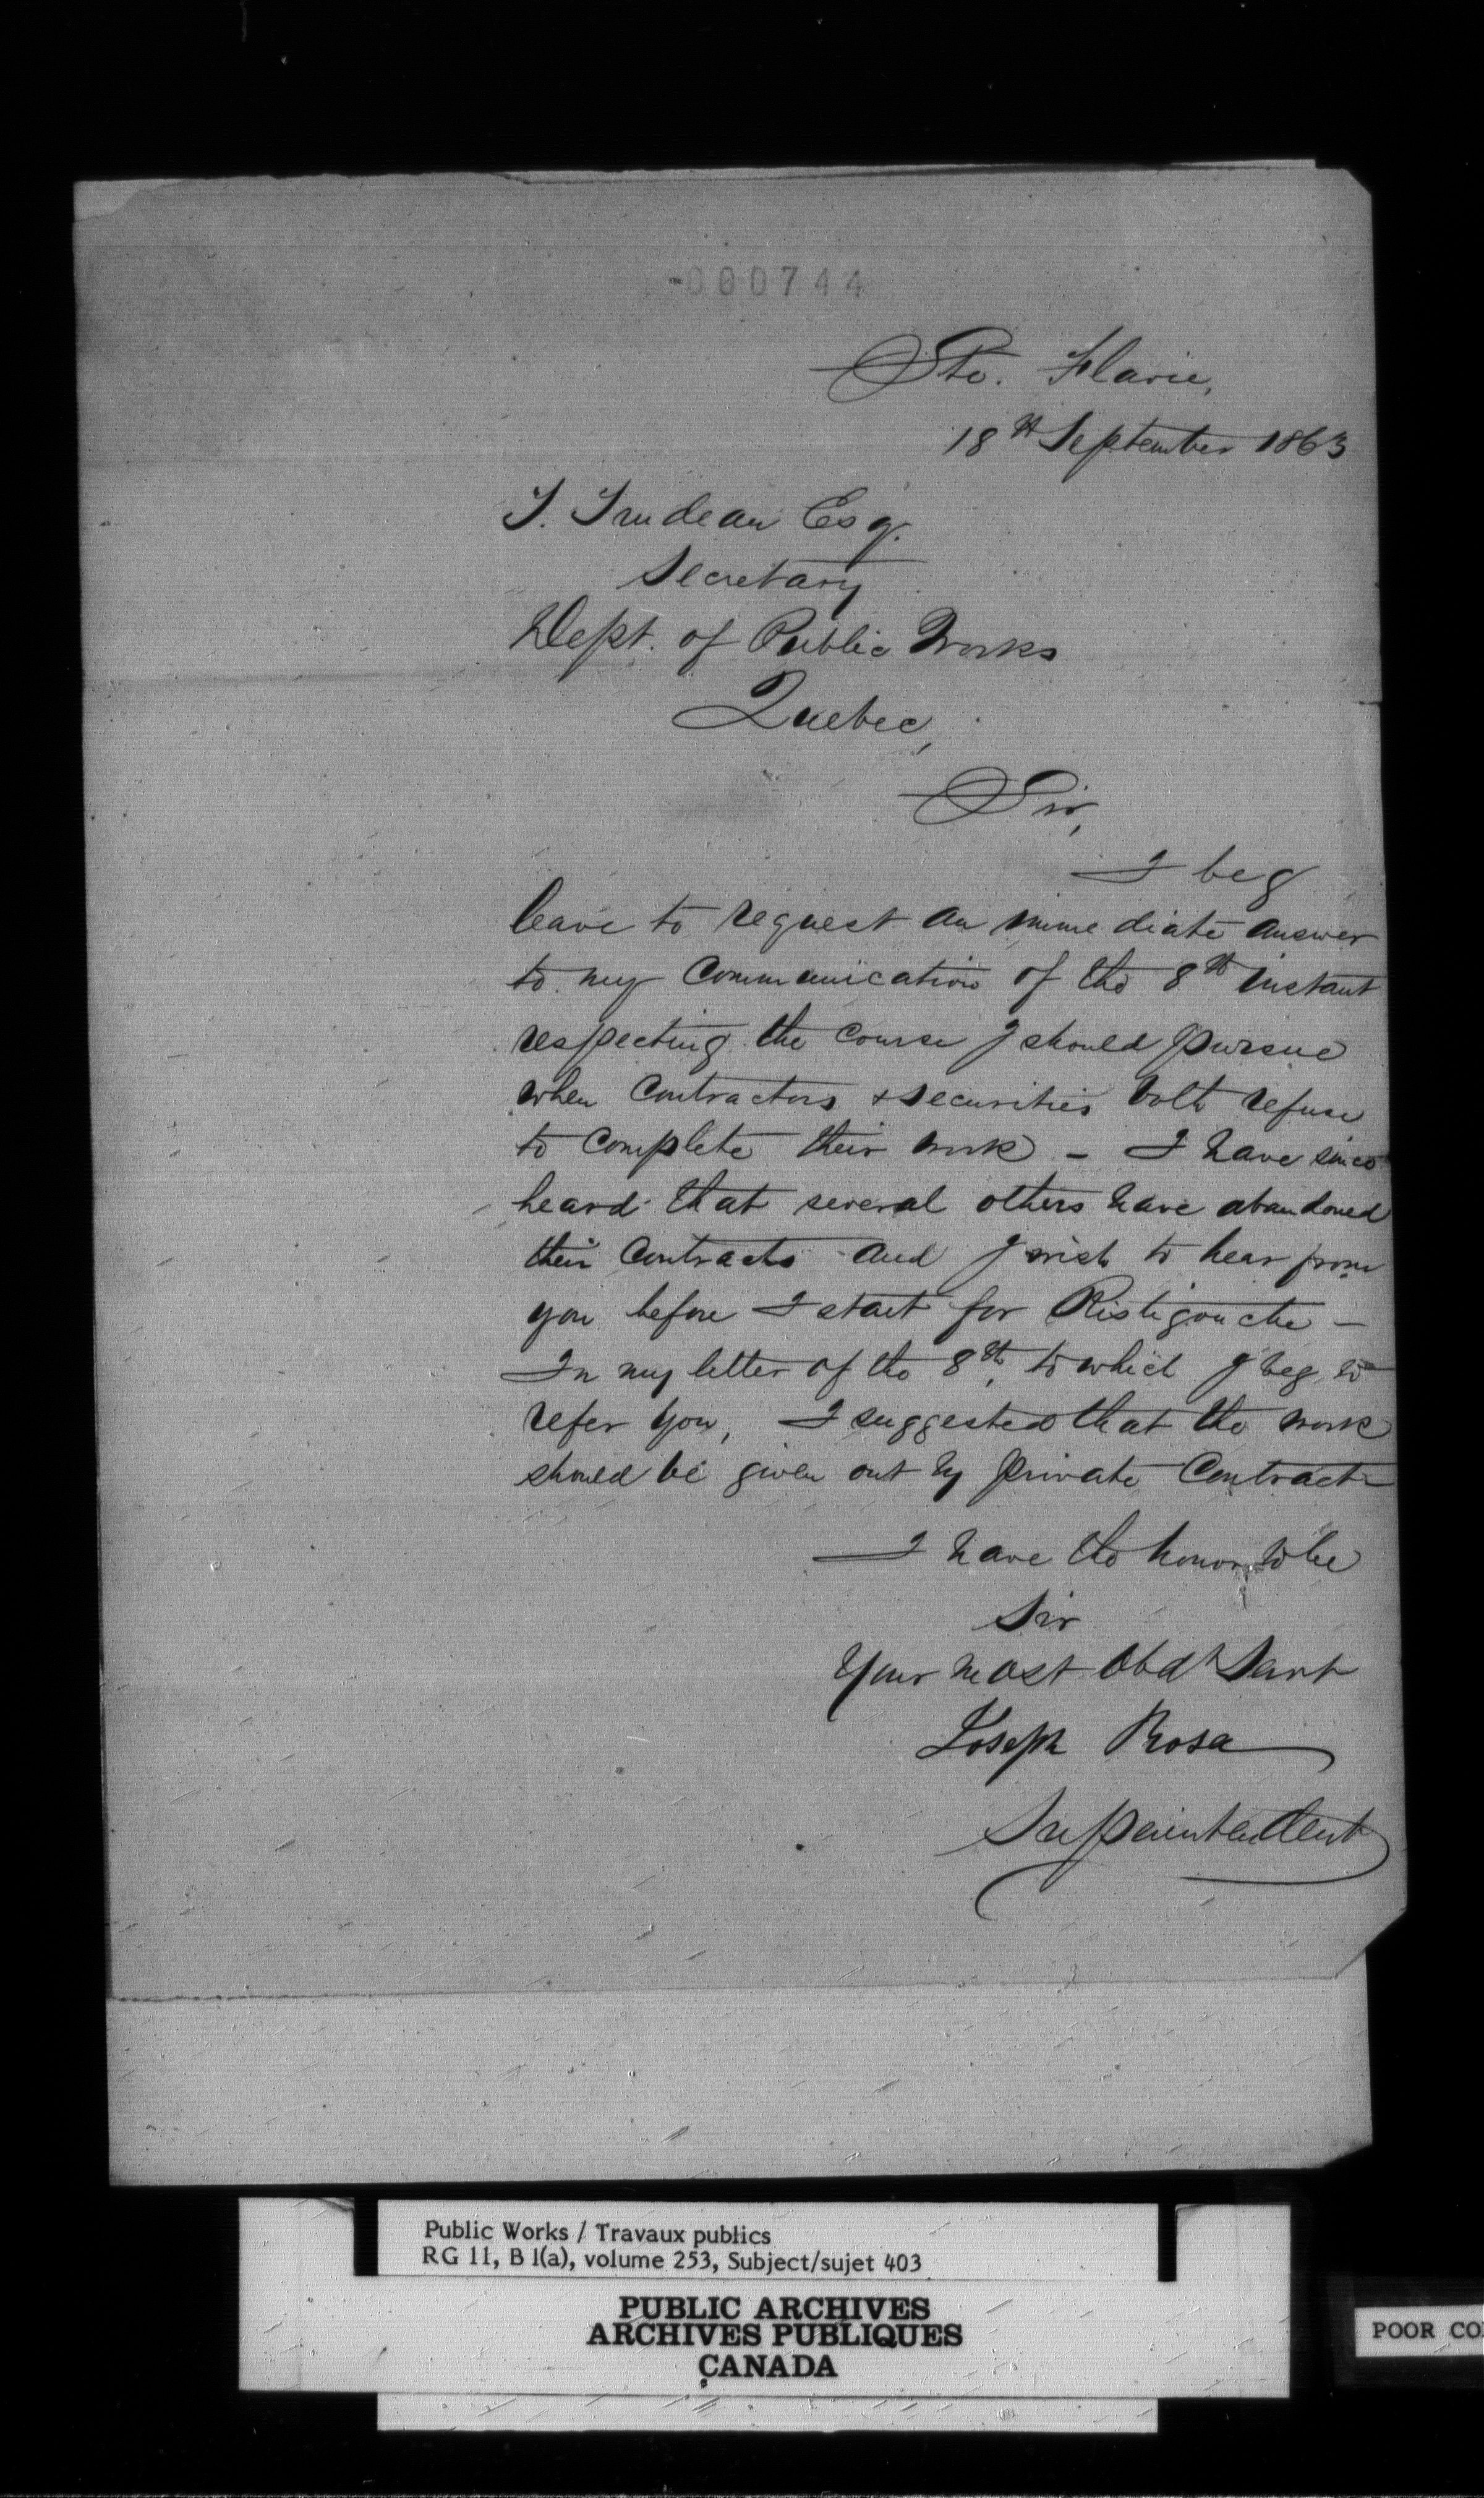 -000744
Ste. Flavie,
18th September 1863
T. Trudeau Esq.
Secretary
Dept. of Public Works
Quebec,
Sir,
I beg
leave to request an immediate answer
to my Communication of the 8th instant
respecting the course I should pursue
when Contractors & securities both refuse
to complete their work - I have since
heard that several others have abandoned
their Contracts and I wish to hear from
you before I start for Ristigouche -
In my letter of the 8th, to which I beg to
refer you, I suggested that the work
should be given out by private Contract-
I have the honor to be
Sir
Your most Obdt Servt
Joseph Rosa
Superintendent
Public Works / Travaux publics
RG 11, B 1(a), volume 253, Subject/sujet 403
PUBLIC ARCHIVES
ARCHIVES PUBLIQUES
CANADA
POOR CO